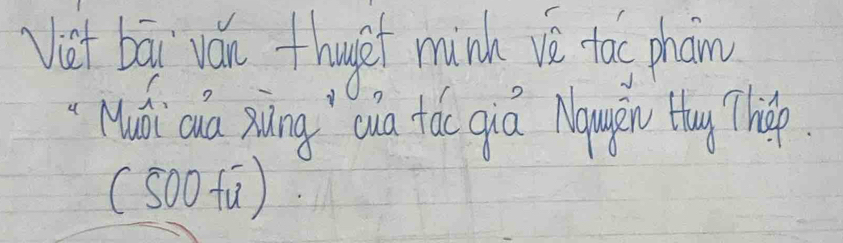 Viết bài văn thuyết minh về tác phẩm
"Muối của rừng" của tác giả Nguyễn Huy Thiệp.
(500 từ).